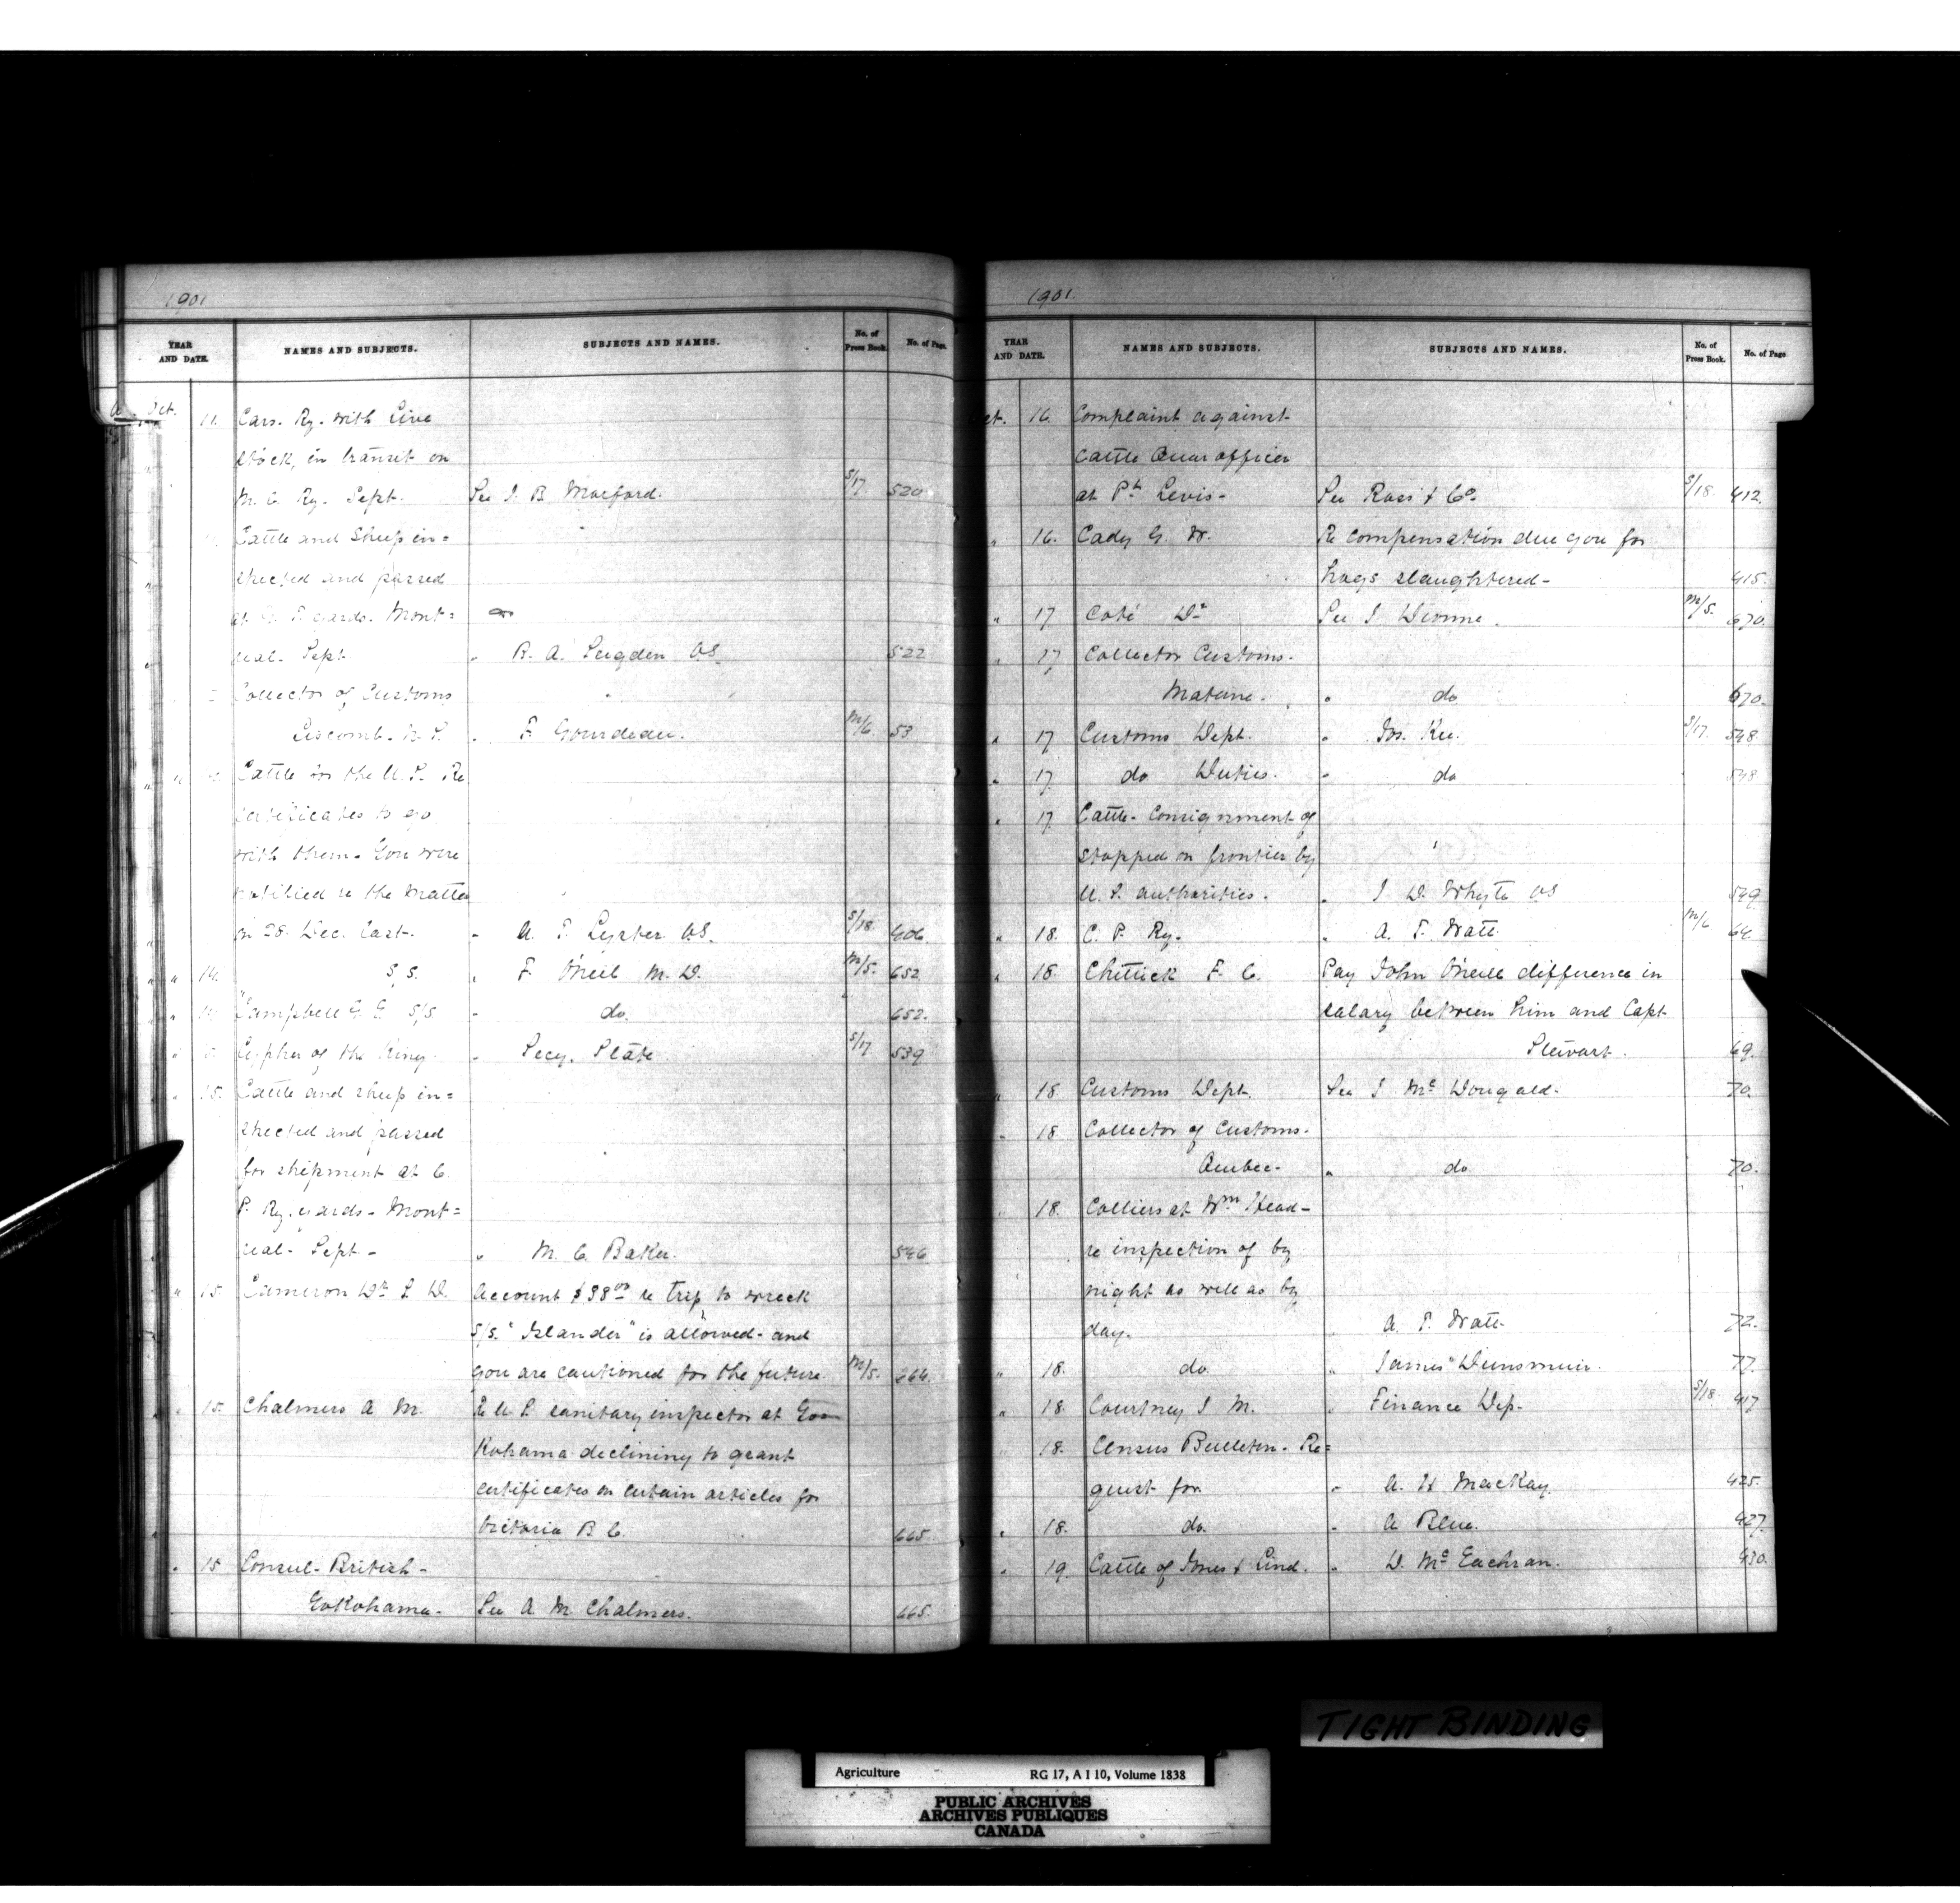 1901
YEAR AND DATE. NAMES AND SUBJECTS. SUBJECTS AND NAMES. No. of Press Book. No. of Page.
Oct. 11. Cars. Ry. with Live
stock, in transit on
M. C. Ry. Sept. See J. B. Morford. S/17 520
Cattle and Sheep in=
spected and passed
at G. T. yards. Mont=
real. Sept. " B. A. Sugden VS 522
Collector of Customs
Liscomb. N. S. " F. Gourdeau. M/6. 53
Cattle for the U. S. Re
certificates to go
with them. You were
notified re the matter
on 28. Dec. last. " A. T. Lyster. VS. S/18 406.
" 14. S/S. " F. O'Neil M. D. M/5. 652
" Campbell G. E. S/S " do. 652.
" Cypher of the King. " Secy. State S/17 539
" 15. Cattle and sheep in=
spected and passed
for shipment at C.
P. Ry. yards - Mont=
real - Sept - " M. C. Baker. 546
" 15. Cameron Dr. L. D. Account $38.00 re trip to wreck
S/S. "Islander" is allowed - and
you are cautioned for the future. M/5. 664.
" 15. Chalmers A M. Re U. S. sanitary inspector at Yo
Kohama declining to grant
certificates on certain articles for
Victoria B. C. 665.
" 15 Consul - British -
Yokohama - See A M Chalmers. 665.
1901.
YEAR AND DATE. NAMES AND SUBJECTS. SUBJECTS AND NAMES. No. of Press Book. No. of Page
Oct. 16. Complaint against
Cattle Quar officer
at Pt. Levis - See Ross & Co. S/18. 412.
" 16. Cady G. W. Re compensation due you for
hogs slaughtered - 415.
" 17 Coté Dr See J Dionne. M/5. 670.
" 17 Collector Customs.
Matane. " do 670.
" 17 Customs Dept. " Jos. Kee. S/17. 548
" 17 do Duties. " do 548
" 17. Cattle - Consignment of
stopped on frontier by
U. S. authorities. " J. D. Whyte VS 549
" 18. C. P. Ry. " A. T. Watt. M/6 64.
" 18. Chittick F. C. Pay John O'Neill difference in
salary between him and Capt.
Stewart. 69.
" 18. Customs Dept. See J McDougald. 70.
" 18 Collector of Customs.
Quebec - " do 70.
" 18. Colliers at Wm Head -
re inspection of by
night as well as by
day. " A. T. Watt. 72.
" 18. do. " James Dunsmuir. 77.
" 18. Courtney J M. " Finance Dep. S/18. 417
18. Census Bulletin. Re=
quest for. " A. H MacKay. 425.
" 18. do. " A Blue. 427.
" 19. Cattle of Jones & Lind. " D. McEachran. 430.
TIGHT BINDING
Agriculture RG 17, A I 10, Volume 1838
PUBLIC ARCHIVES
ARCHIVES PUBLIQUES
CANADA